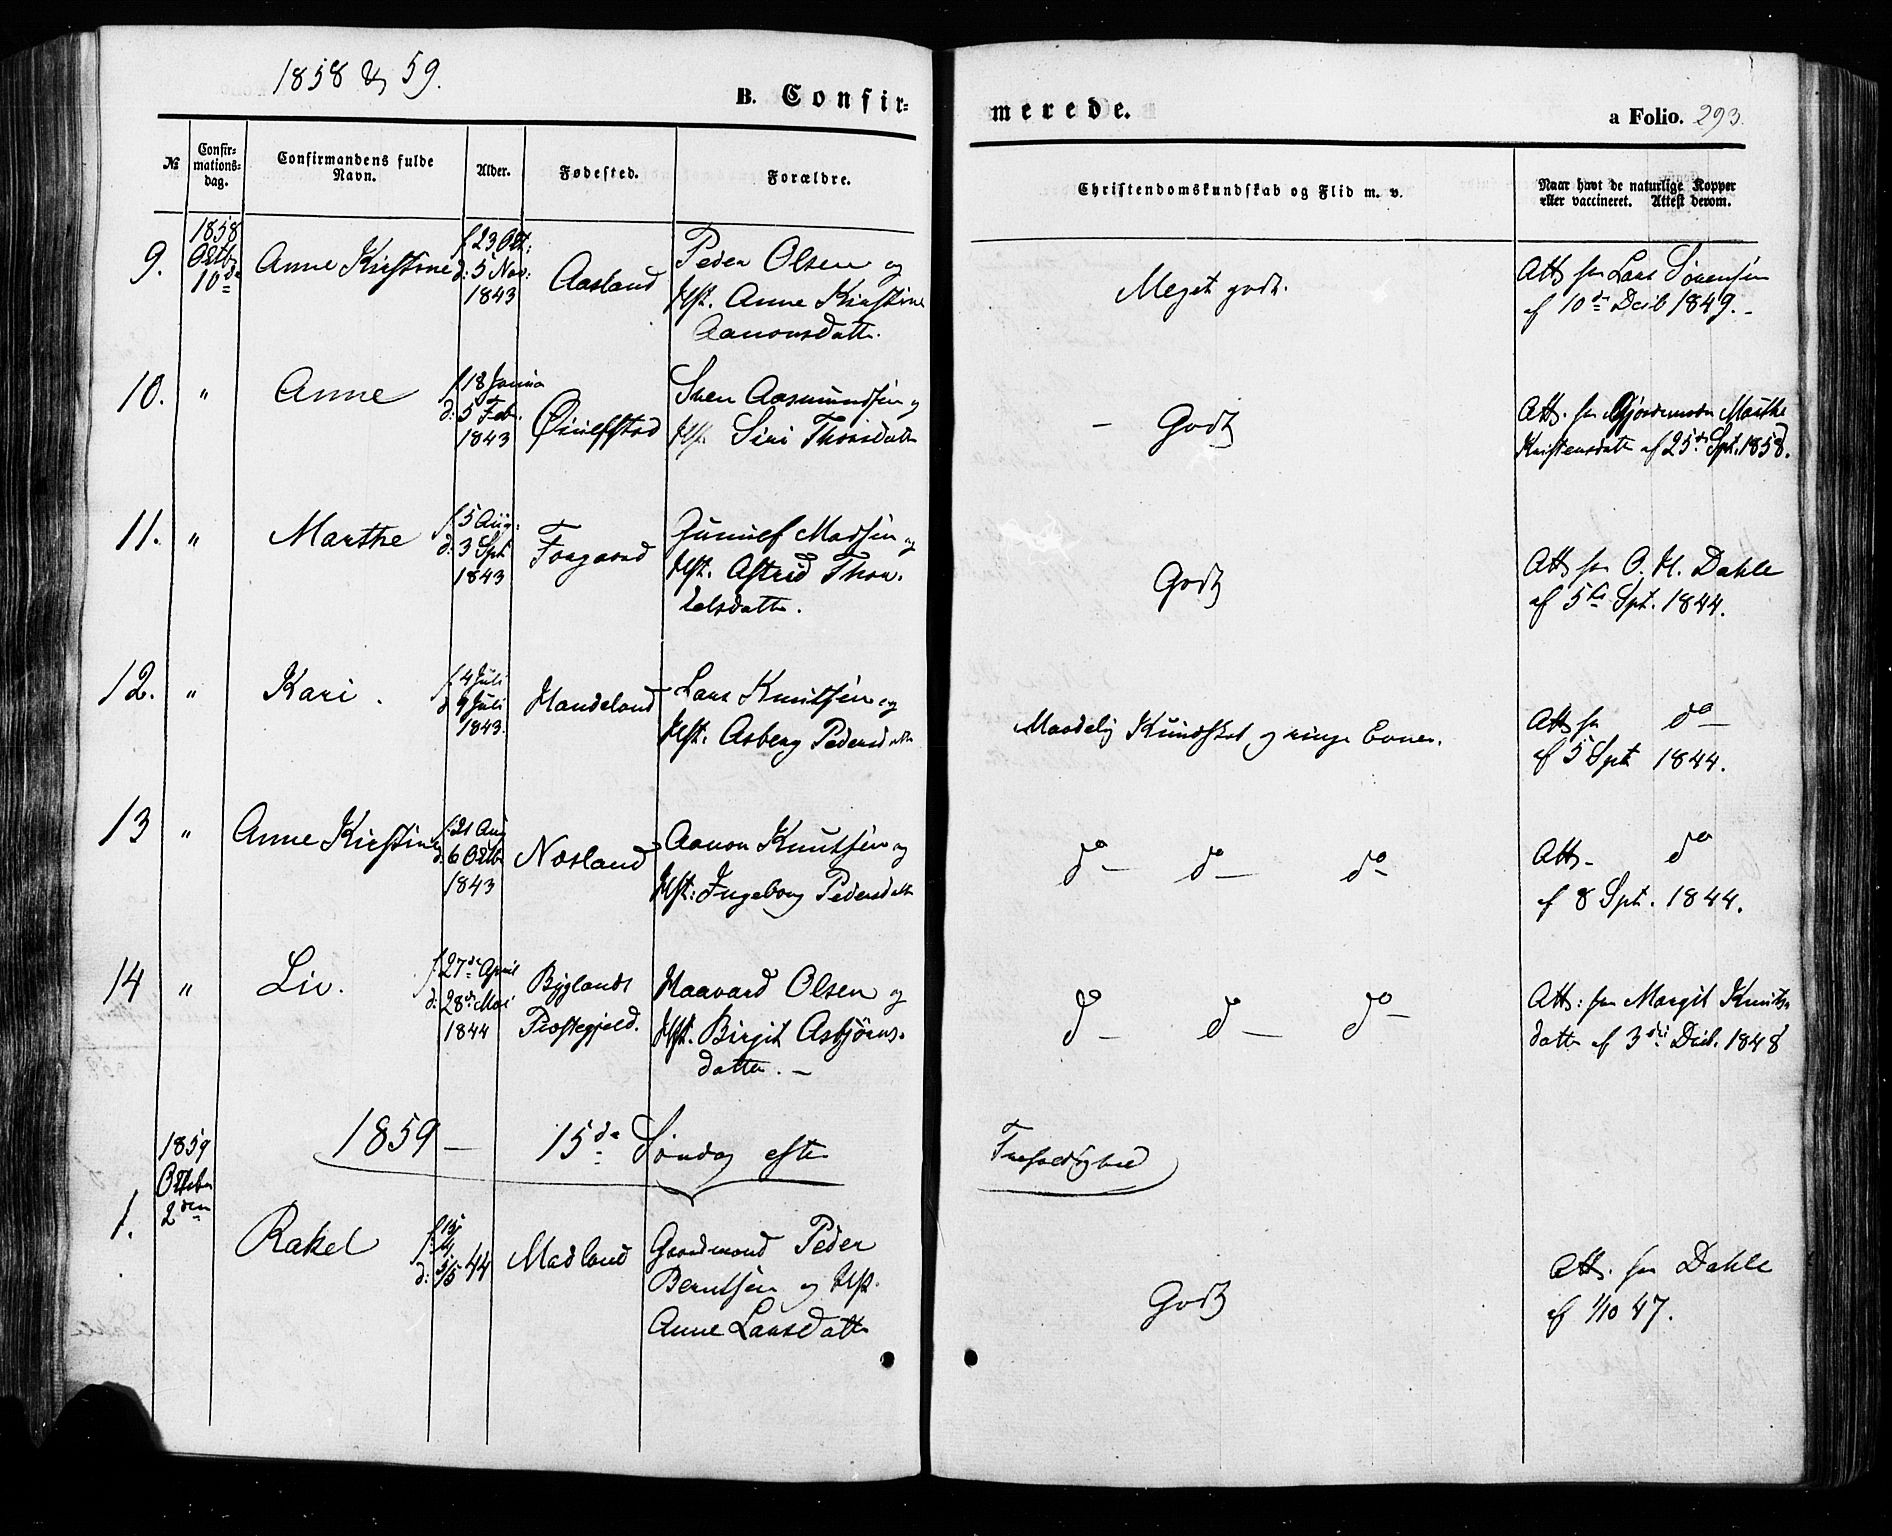 1858 & 59.
B. Confir-
merede.
a Folio. 293.
№
Confir-
mations-
dag.
Confirmandens fulde
Navn.
Alder.
Fødested.
Forældre.
Christendomskundskab og Flid m. v.
Naar havt de naturlige Kopper
eller vaccineret. Attest derom.
9.
1858
Octb
10de
Anne Kirstine
f 23 Oct:
d: 5 Nov:
1843
Aasland
Peder Olsen og
Hst. Anne Kirstine
Aanonsdatter.
Meget godt.
Att fra Lars Sørensen
af 10de Decb 1849.-
10.
"
Anne
f 18 Janua
d: 5 Feb.
1843
Sven Aasmundsen og
Hst. Siri Thorsdatter
- Godt
Att. fra Gjordemoder Marthe
Kristensdatter af 25de Sept. 1858.
11.
"
Marthe
f 5 Aug.
d: 3 Sept
1843
Gunulf Madsen og
Hst. Astrid Thor-
Godt
Att fra O. H. Dahle
af 5te Spt. 1844.
12.
"
Kari.
f 4 Juli
d 9 Juli
1843.
Handeland
Lars Knutsen og
Hst. Asberg Pedersdatter
Maadelig Kundskab og ringe Evner.
Att fra do -
af 5 Spt 1844.
13
"
Anne Kirstine
f: 21 Aug
d: 6 Octb
1843
Nosland
Aanon Knutsen og
Hst: Ingeborg Pedersdatter
do - do - do -
Att- do
af 8 Spt. 1844.
14
"
Liv.
f. 27de April
d: 28de Mai
1844
Byglands
Præstegjeld.
Haavard Olsen og
Hst. Birgit Asbjørns-
datter. -
do - do - do -
Att: fra Margit Knuts-
datter af 3die Decb. 1848
1859 - 15de Søndag efter
Trefoldighed
1.
1859
Octber
2den
Rakel
d: 5/5 44
Madland
Gaardmand Peder
Berntsen og Hst.
Anne Larsdatter
Godt
Att. fra Dahle
af 1/10 47.